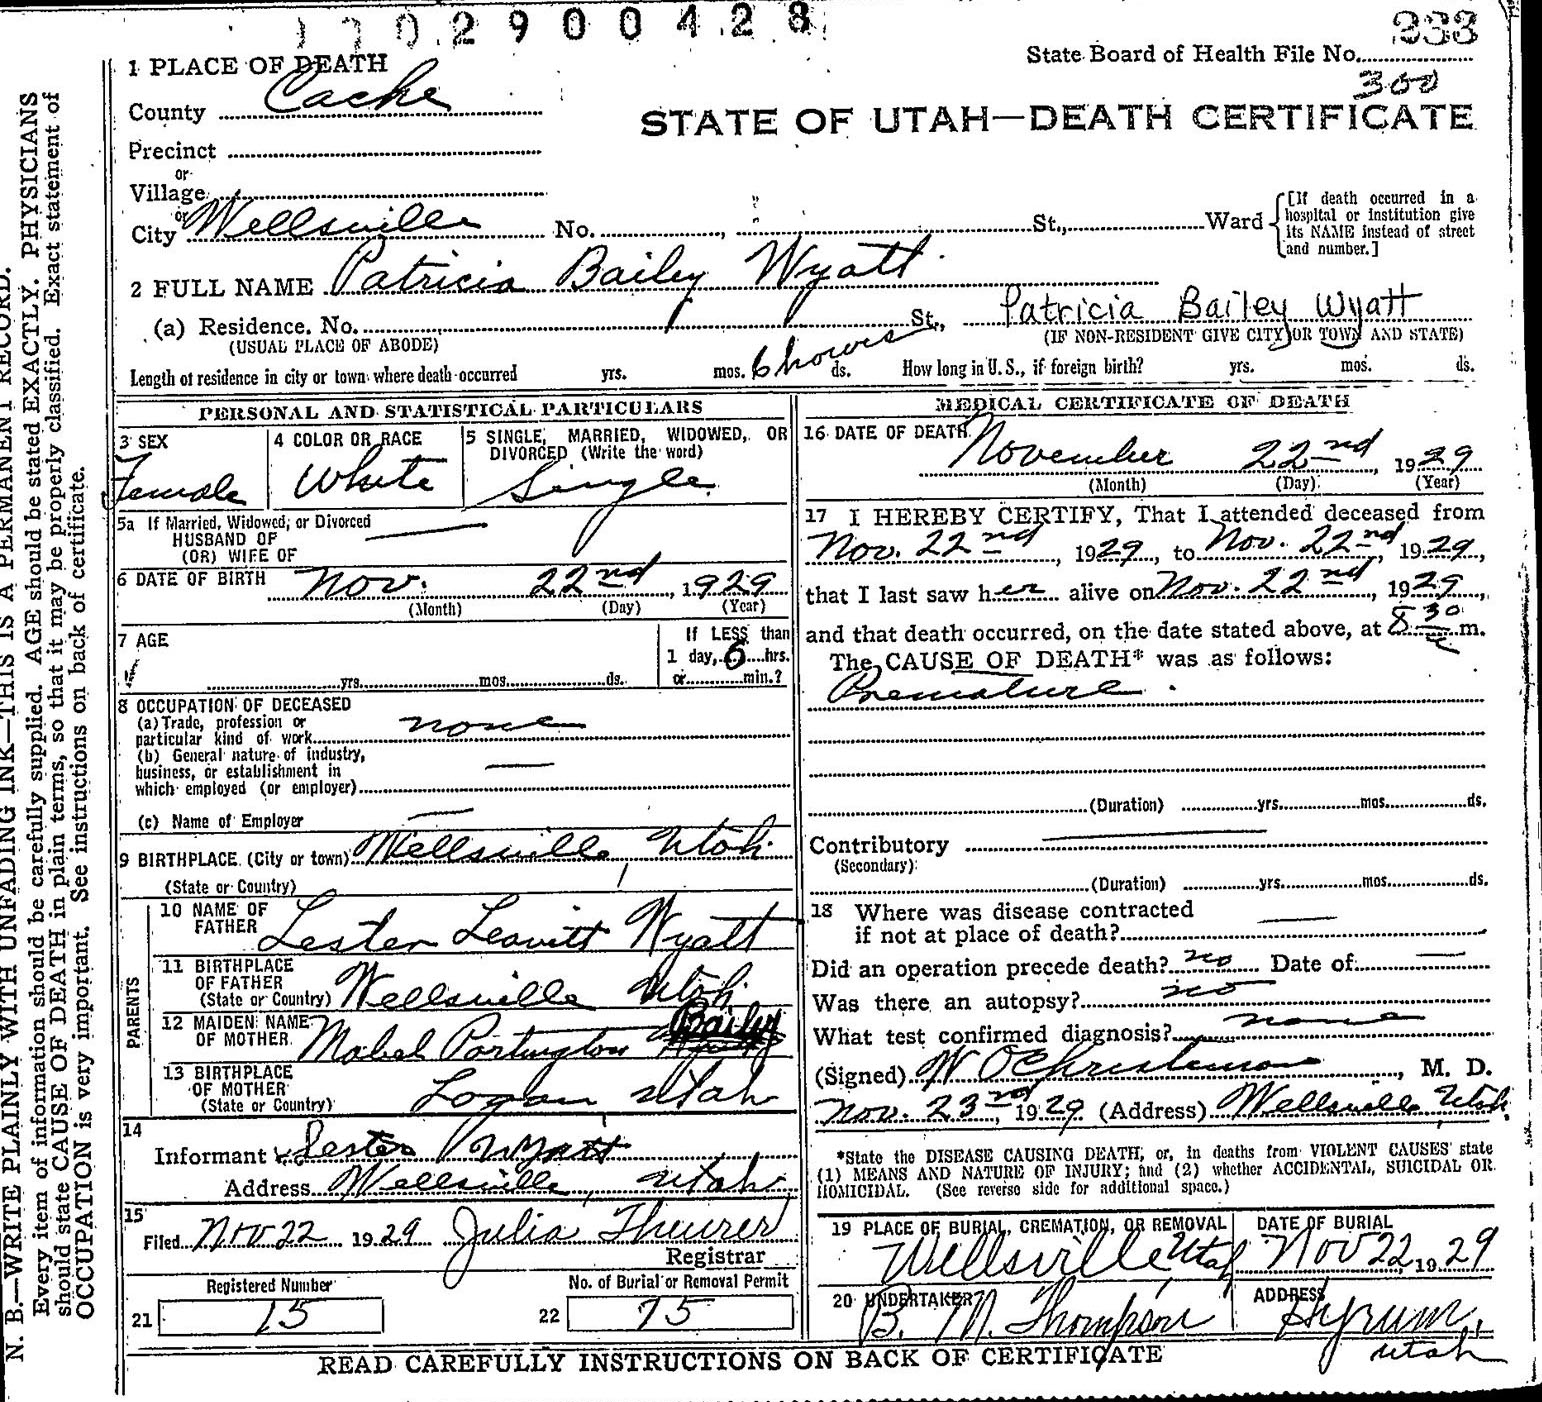 2900428
State Board of Health File No. 333
300
1 PLACE OF DEATH
County Cache
STATE OF UTAH—DEATH CERTIFICATE
Precinct
or
Village
or
City Wellsville No. , St., Ward
[If death occurred in a
hospital or institution give
its NAME instead of street
and number.]
2 FULL NAME Patricia Bailey Wyatt
(a) Residence. No. St., Patricia Bailey Wyatt
(USUAL PLACE OF ABODE) (IF NON-RESIDENT GIVE CITY OR TOWN AND STATE)
Length of residence in city or town where death occurred yrs. mos. 6 hours ds. How long in U.S., if foreign birth? yrs. mos. ds.
PERSONAL AND STATISTICAL PARTICULARS
3 SEX
Female
4 COLOR OR RACE
White
5 SINGLE, MARRIED, WIDOWED, OR
DIVORCED (Write the word)
Single
5a If Married, Widowed, or Divorced
HUSBAND OF
(OR) WIFE OF
6 DATE OF BIRTH Nov. 22nd, 1929
(Month) (Day) (Year)
7 AGE
yrs. mos. ds.
If LESS than
1 day, 6 hrs.
or min.?
8 OCCUPATION OF DECEASED
(a) Trade, profession or
particular kind of work none
(b) General nature of industry,
business, or establishment in
which employed (or employer) —
(c) Name of Employer —
9 BIRTHPLACE (City or town) Wellsville, Utah
(State or Country)
PARENTS
10 NAME OF
FATHER Lester Leavitt Wyatt
11 BIRTHPLACE
OF FATHER
(State or Country) Wellsville Utah
12 MAIDEN NAME
OF MOTHER Mabel Partington Bailey
13 BIRTHPLACE
OF MOTHER
(State or Country) Logan Utah
14
Informant Lester Wyatt
Address Wellsville, Utah
15
Filed Nov 22 1929 Julia Theurer
Registrar
Registered Number
21 15
No. of Burial or Removal Permit
22 75
MEDICAL CERTIFICATE OF DEATH
16 DATE OF DEATH
November 22nd, 1929
(Month) (Day) (Year)
17 I HEREBY CERTIFY, That I attended deceased from
Nov. 22nd, 1929, to Nov. 22nd, 1929,
that I last saw her alive on Nov. 22nd, 1929,
and that death occurred, on the date stated above, at 8 30 m.
The CAUSE OF DEATH* was as follows:
Premature.
(Duration) yrs. mos. ds.
Contributory —
(Secondary)
(Duration) yrs. mos. ds.
18 Where was disease contracted
if not at place of death? —
Did an operation precede death? no Date of —
Was there an autopsy? no
What test confirmed diagnosis? none
(Signed) W O Christenson, M. D.
Nov. 23rd, 1929 (Address) Wellsville Utah.
*State the DISEASE CAUSING DEATH, or, in deaths from VIOLENT CAUSES state
(1) MEANS AND NATURE OF INJURY; and (2) whether ACCIDENTAL, SUICIDAL OR
HOMICIDAL. (See reverse side for additional space.)
19 PLACE OF BURIAL, CREMATION, OR REMOVAL
Wellsville Utah
DATE OF BURIAL
Nov 22, 1929
20 UNDERTAKER
B. M. Thompson
ADDRESS
Hyrum,
Utah
READ CAREFULLY INSTRUCTIONS ON BACK OF CERTIFICATE
N. B.—WRITE PLAINLY WITH UNFADING INK—THIS IS A PERMANENT RECORD.
Every item of information should be carefully supplied. AGE should be stated EXACTLY. PHYSICIANS
should state CAUSE OF DEATH in plain terms, so that it may be properly classified. Exact statement of
OCCUPATION is very important. See instructions on back of certificate.